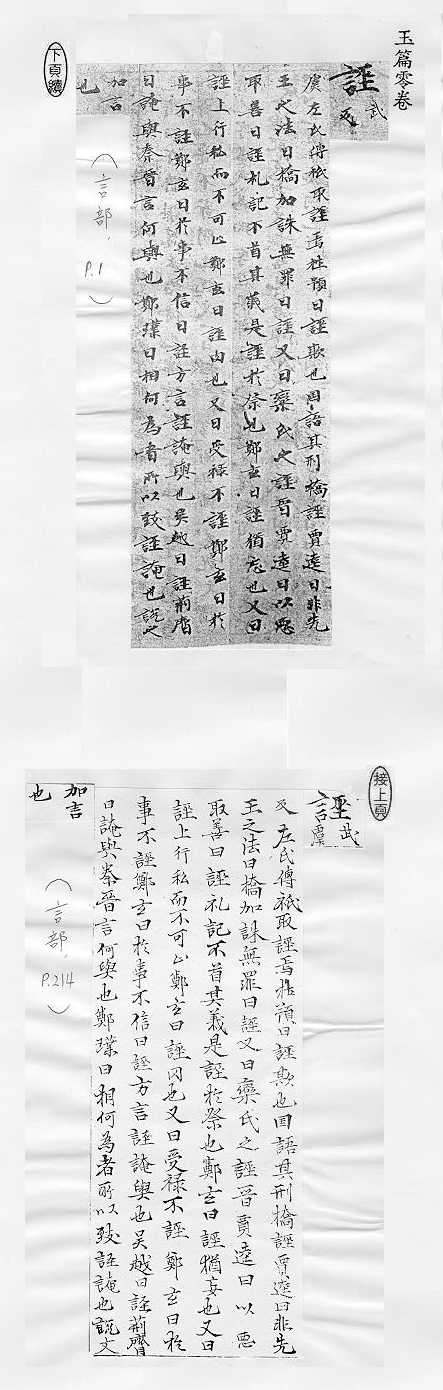 玉篇零卷
下頁續
誣武
反
虞左氏傳秖取誣焉杜預曰誣欺也国語其刑橋誣賈逵曰非先
王之法曰橋加誅無罪曰誣又曰欒氏之誣晉賈逵曰以惡
取善曰誣礼記不首其義是誣於祭也鄭玄曰誣猶忘也又曰
誣上行私而不可止鄭玄曰誣囚也又曰受祿不誣鄭玄曰於
事不誣鄭玄曰於事不信曰誣方言誣䛳與也吳越曰誣荊齊
曰䛳與秦晉言何與也鄭璞曰相何為者所以致誣䛳也說文
加言
也
（言部，P.1）
接上頁
誣武
虞
反左氏傳秖取誣焉杜預曰誣欺也国語其刑橋誣賈逵曰非先
王之法曰橋加誅無罪曰誣又曰欒氏之誣晉賈逵曰以惡
取善曰誣礼記不首其義是誣於祭也鄭玄曰誣猶妄也又曰
誣上行私而不可止鄭玄曰誣冈也又曰受祿不誣鄭玄曰於
事不誣鄭玄曰於事不信曰誣方言誣䛳與也吳越曰誣荊齊
曰䛳與秦晉言何與也鄭璞曰相何為者所以致誣䛳也說文
加言
也
（言部，P.214）